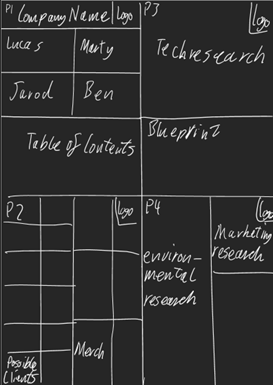 P1 Company Name Logo
Lucas Marty
Jarod Ben
Table of Contents
P3 Logo
Tech research
Blueprint
P2 Logo
Possible
Clients
Merch
P4 Logo
environ-
mental
research
Marketing
research